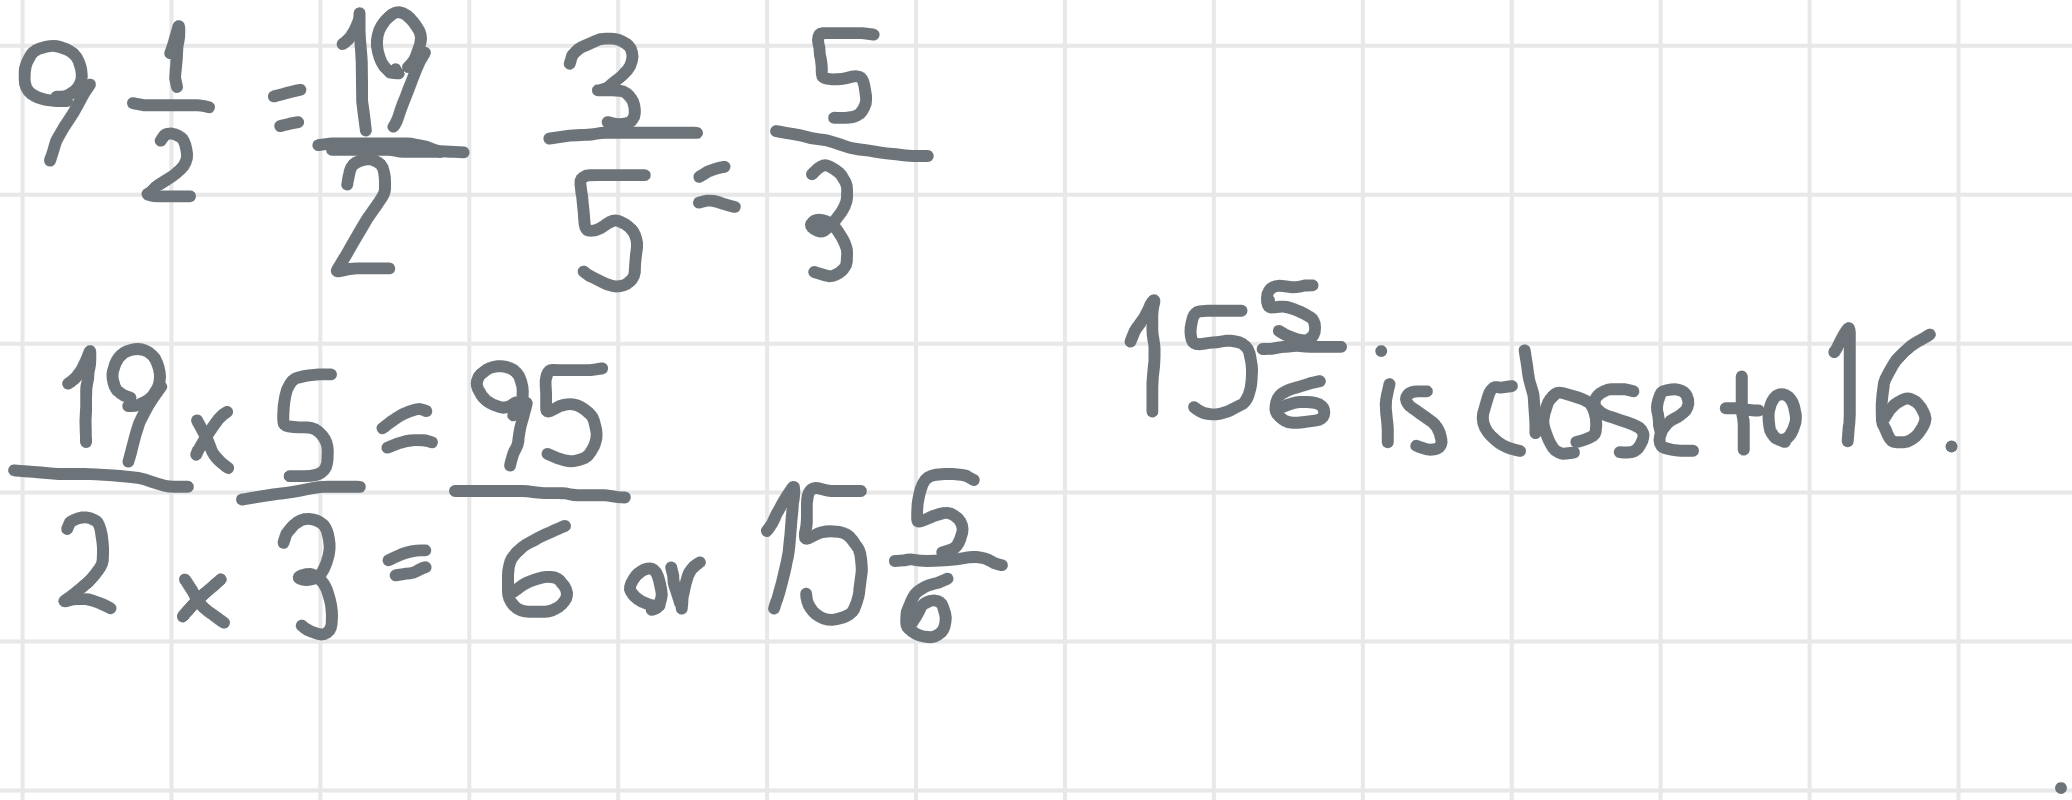 9 1/2 = 19/2 3/5 = 5/3
19/2 x 5/3 = 95/6 or 15 5/6
15 5/6 is close to 16.